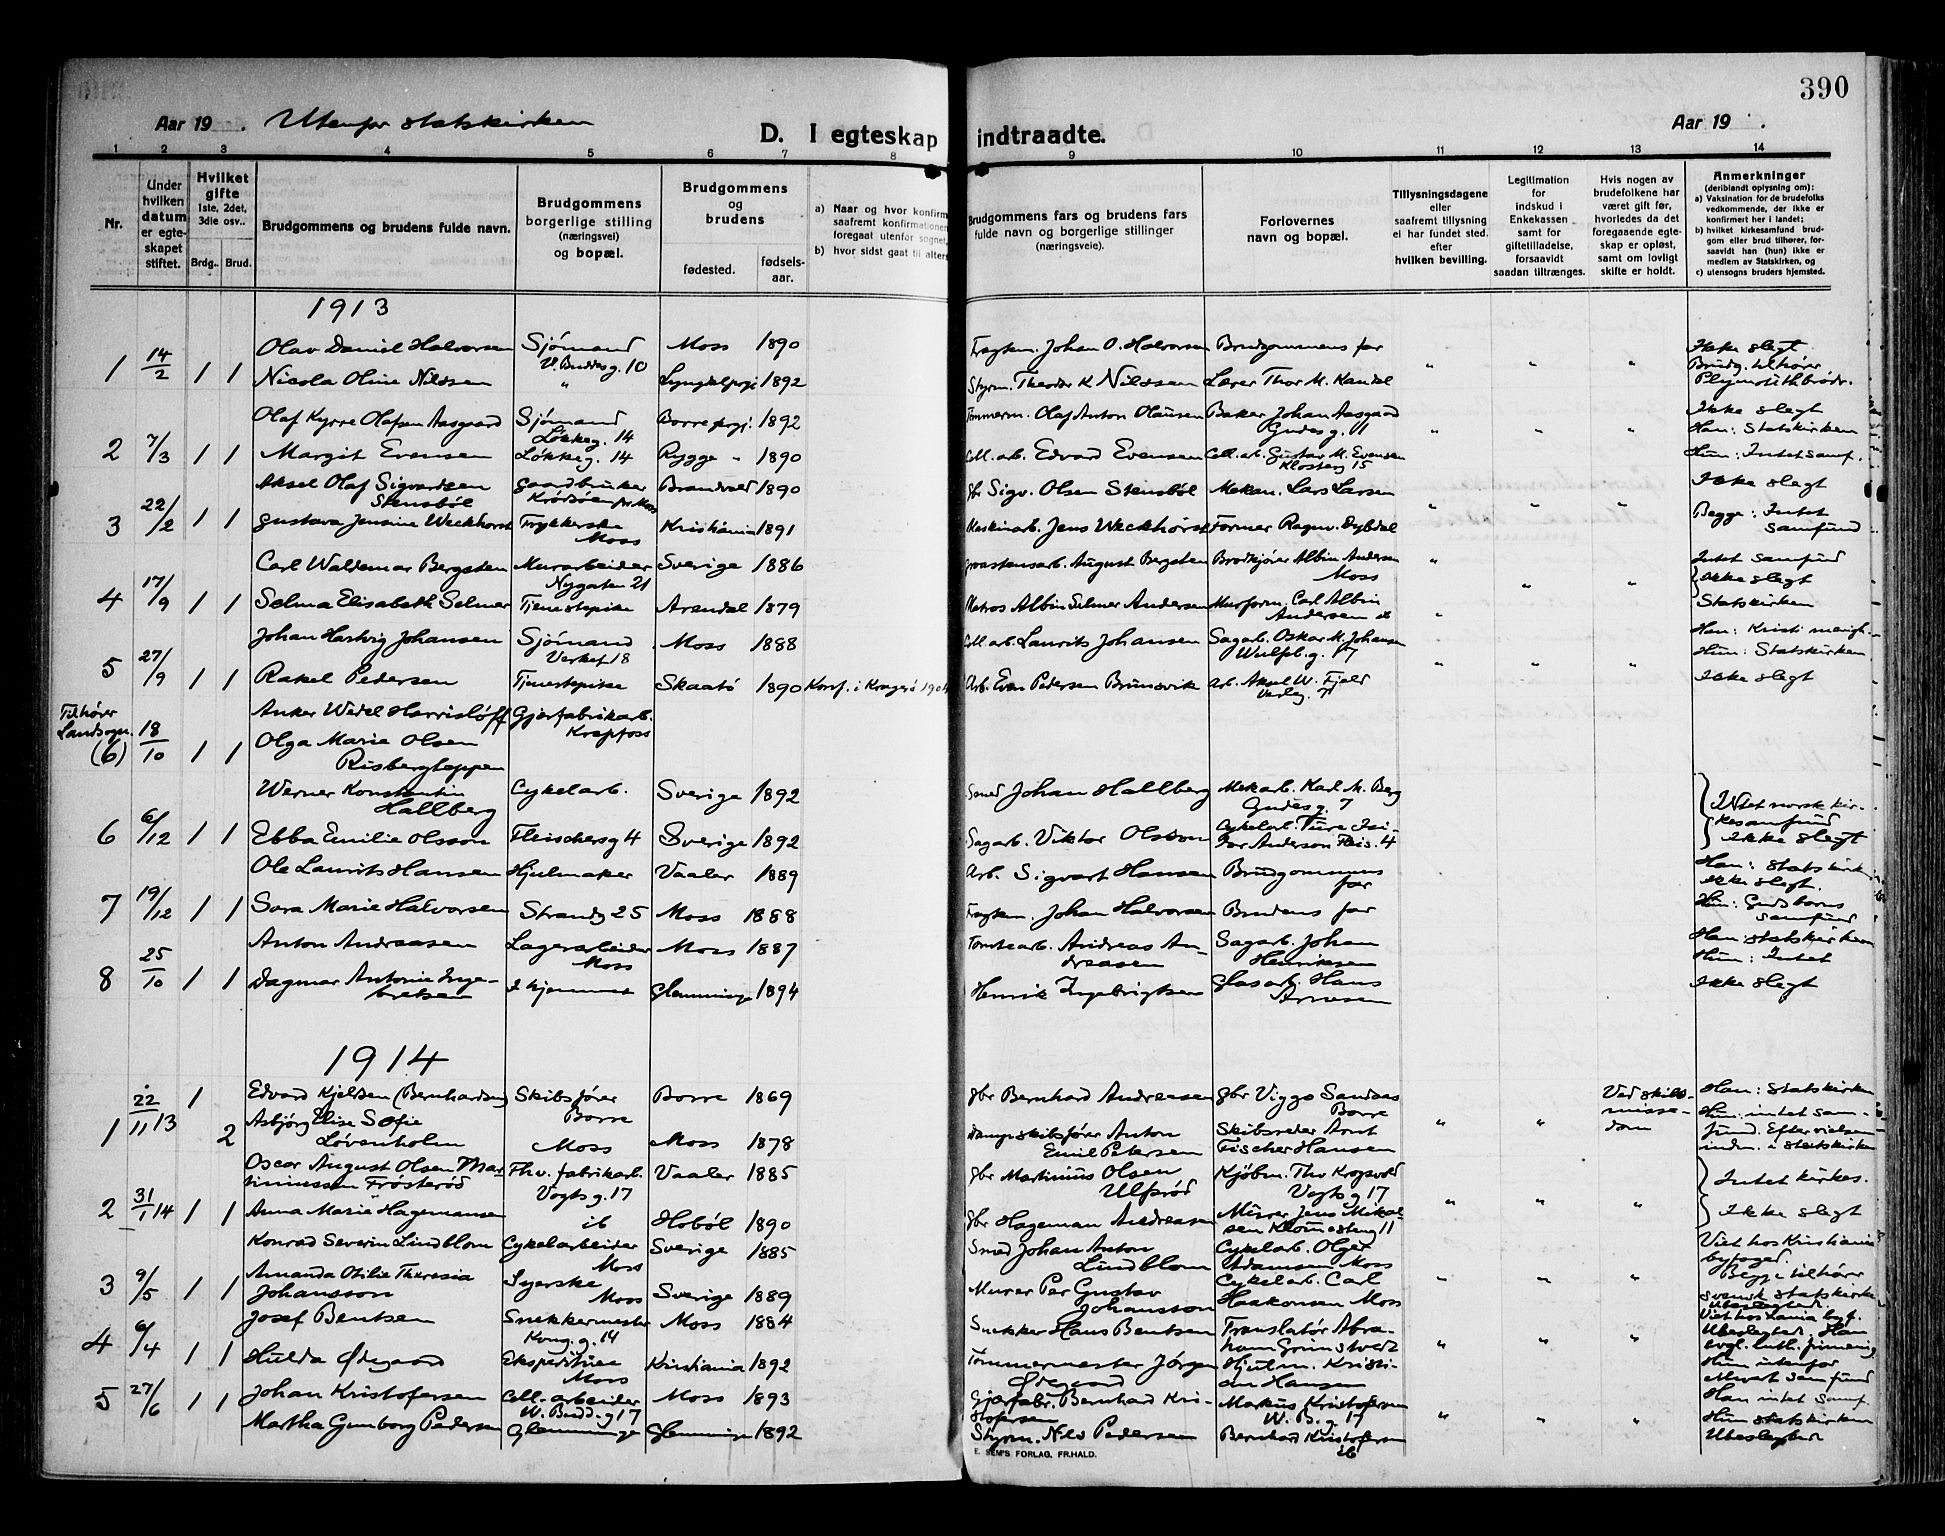 390
Aar 19 . Utenfor statskirken
D. I egteskap indtraadte.
Aar 19 .
1 2 3 4 5 6 7 8 9 10 11 12 13 14
Nr.
Under hvilken datum er egteskapet stiftet.
Hvilket gifte 1ste, 2det, 3die osv..
Brdg.. Brud.
Brudgommens og brudens fulde navn.
Brudgommens borgerlige stilling (næringsvei) og bopæl.
Brudgommens og brudens
fødested. fødselsaar.
a) Naar og hvor konfirm saafremt konfirmationen foregaat utenfor sognet,
b) hvor sidst gaat til alters
Brudgommens fars og brudens fars fulde navn og borgerlige stillinger (næringsveie).
Forlovernes navn og bopæl.
Tillysningsdagene eller saafremt tillysning ei har fundet sted. efter hvilken bevilling.
Legitimation for indskud i Enkekassen samt for giftetilladelse, forsaavidt saadan tiltrænges.
Hvis nogen av brudefolkene har været gift før, hvorledes da det foregaaende egteskap er opløst, samt om lovligt skifte er holdt.
Anmerkninger (deriblandt oplysning om):
a) Vaksination for de brudefolks vedkommende, der ikke er konfirmert her i landet;
b) hvilket kirkesamfund brudgom eller brud tilhører, forsaavidt han (hun) ikke er medlem av Statskirken, og
c) utensogns bruders hjemsted.
1913
Olav Daniel Halvorsen Sjömand Moss 1890 Fragtem. Johan O. Halvorsen Brudgommens far Ikke slegt
1 14/2 1 1 V. Buddesg. 10 " " " Brudg. tilhører
Nicola Oline Nilssen " 1892 Styrm. Theodor K Nilssen Lærer Thor M. Kandal Plymouthbrödr.
Olaf Kyrre Olafsen Aasgaard Sjömand Borre prgj. 1892 Tømmerm. Olaf Anton Olausen Baker Johan Aasgaard Ikke slegt
Løkkeg. 14 Gudesg. 11 Han: Statskirken
2 7/3 1 1 Margit Evensen Løkkeg. 14 Rygge " 1890 Cell. arb. Edvard Evensen Cell. arb. Gustav M. Evensen Hun: Intet samf.
Klosterg 15
Aksel Olaf Sigvardsen Gaardbruker Brandval 1890 Gbr Sigv. Olsen Stensböl Mekan. Lars Larsen Ikke slegt
Stensböl
3 22/2 1 1 Gustava Jensine Weckhorst Trykkerske Kristiania 1891 Maskinarb. Jens Weckhorst Former Ragnv. Dybdal Begge: Intet
Moss samfund
Carl Waldemar Bergsten Murarbeider Sverige 1886 August Bergsten Brödkjører Albin Andersen Intet samfund
Nygaten 21 Moss Ikke slegt
4 17/9 1 1 Selma Elisabeth Selmer Tjenestepike Arendal 1879 Matros Albin Selmer Andersen Murform. Carl Albin Statskirken
Andersen
Johan Hartvig Johansen Sjömand Moss 1888 Cell. arb. Laurits Johansen Sagarb. Oskar M. Johansen Han: Kristi menigh.
Verket 18 Wulfsb. g. 17 Hun: Statskirken
5 27/9 1 1 Rakel Pedersen Tjenestepike Skaatö 1890 Konf. i Kragerö 1904 Arb. Even Pedersen Brunsvik Arb. Aksel W. Fjeld Ikke slegt
Tilhører Landsogn. Anker Wedel Harrislöff Gjærfabrikarb.
Krapfoss
(6) 18/10 1 1 Olga Marie Olsen
Risbergteppen
Werner Konstantin Cykelarb. Sverige 1892 Smed Johan Hallberg Mekarb. Karl M. Berg
Hallberg Gudesg. 7 Intet norsk kir-
kesamfund
6 6/12 1 1 Ebba Emilie Olsson Fleischersg 4 Sverige 1892 Sagarb. Viktor Olsson Cykelarb. Ture Isi- Ikke slegt
dor Anderson Fleis. 4
Ole Laurits Hansen Hjulmaker Vaaler 1889 Arb. Sigvart Hansen Brudgommens Han: Statskirk.
far Ikke slegt.
7 19/12 1 1 Sara Marie Halvorsen Strandg 25 Moss 1888 Fragtem. Johan Halvorsen Brudens far Hun: Guds barns
samfund
Anton Andreasen Lagerarbeider Moss 1887 Tomtearb. Andreas An- Sagarb. Johan Han: Statskirken
Moss dreasen Henriksen Hun: Intet
8 25/10 1 1 Dagmar Antonie Inge- I hjemmet Glemminge 1894 Henrik Ingebrigtsen Glasarb. Hans Ikke slegt
bretsen Arnesen
1914
22/11 13 1 Edvard Kjeldsen (Bernhardsen) Skibsfører Borre 1869 Gbr Bernhard Andreasen Gbr Viggo Sandaas Ved skils- Han: Statskirken
Borre Borre misse- Hun: intet sam-
1 2 Asbjørg Elise Sofie Dampskibsfører Anton Skibsreder Arnt dom fund. Efter vielsen
Lövenholm Moss Moss 1878 Emil Petersen Fischer Hansen indm. i statskirken
Oscar August Olsen Mar- Fhv. fabrikarb. Vaaler 1885 Gbr Martinius Olsen Kjöbm. Thv Krogsvold Intet kirkes.
tiniussen Frösteröd Vogtsg. 17 Ulfsröd Vogtsg 17
2 31/1 14 1 1 Anna Marie Hagemansen ib Hoböl 1890 Gbr Hageman Andreasen Murer Jens Mikal- Ikke slegt
sen 11
Konrad Severin Lindblom Cykelarbeider Sverige 1885 Smed Johan Anton Cykelarb. Olger Viet hos Kristiania
Moss Lindblom Adamsen Moss byfoged.
3 9/5 1 1 Amanda Otilie Theresia Syerske Sverige 1889 Murer Per Gustav Cykelarb. Carl Begge tilhører
Johansson Moss Johansson Haakonsen Moss svensk statskirke
Ubeslegtede
Josef Bentsen Snekkermester Moss 1884 Snekker Hans Bentsen Translatör Abra- Viet hos
Kong. g. 14 ham Grimstvedt Ubeslegted. Han
4 6/4 1 1 Hulda Ødegaard Ekspeditrice Kristiania 1892 Tømmermester Jørgen Hjulm. Kristi- evgl. luth.
Moss Ødegaard an Hansen Hun utenfor
ethvert samfund
5 27/6 1 1 Johan Kristofersen Cell. arbeider Moss 1893 Gjærfabr. Bernhard Kri- Markus Kristofersen Han intet samf.
W. Budd. g 17 stofersen W. B. g. 17 Hun Statskirken
Martha Gunborg Pedersen Glemminge Glemminge 1892 Styrm. Nils Pedersen Bernhard Kristofersen Ubeslegtet
ib
E. SEM'S FORLAG, FR.HALD.